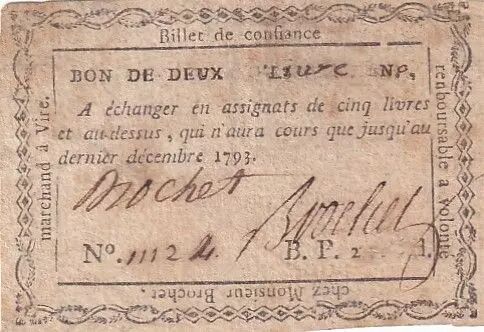 Billet de confiance
BON DE DEUX Liure
A échanger en assignats de cinq livres
et au-dessus, qui n'aura cours que jusqu'au
dernier décembre 1793.
Brochet Brochet
No. 11124. B. P. 2 d.
remboursable a volonté
chez Monsieur Brochet,
marchand à Vire.